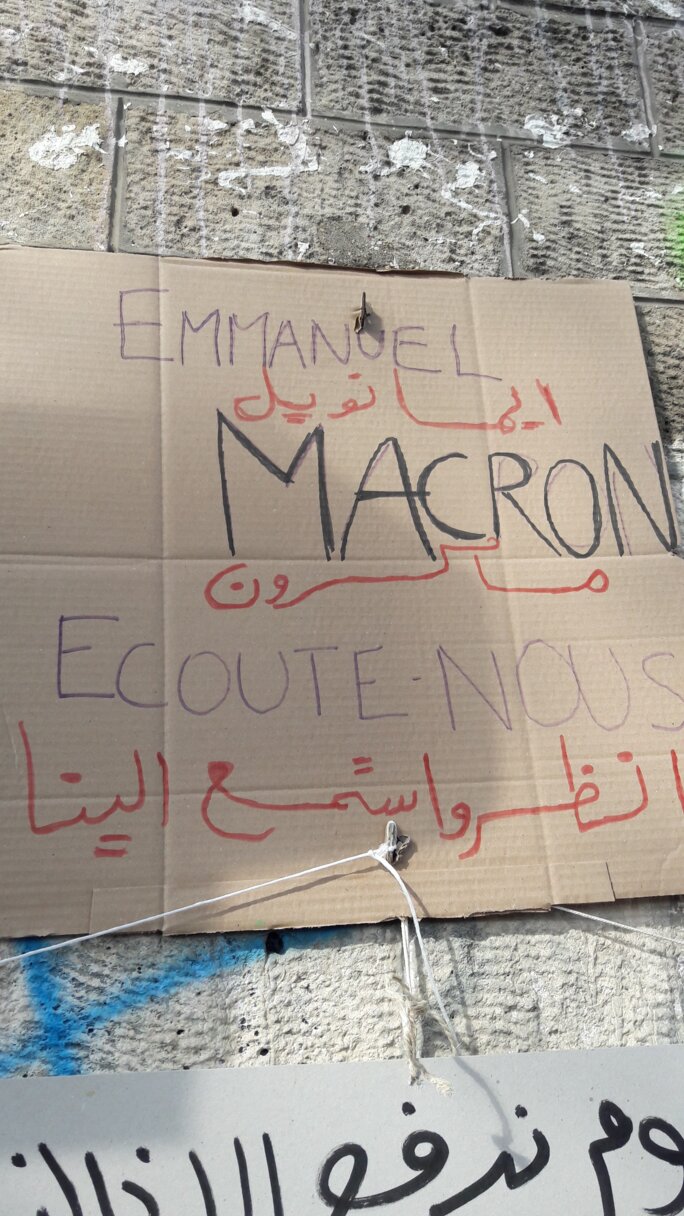 EMMANUEL
ايمانويل
MACRON
ماكرون
ECOUTE-NOUS
انظر واستمع الينا